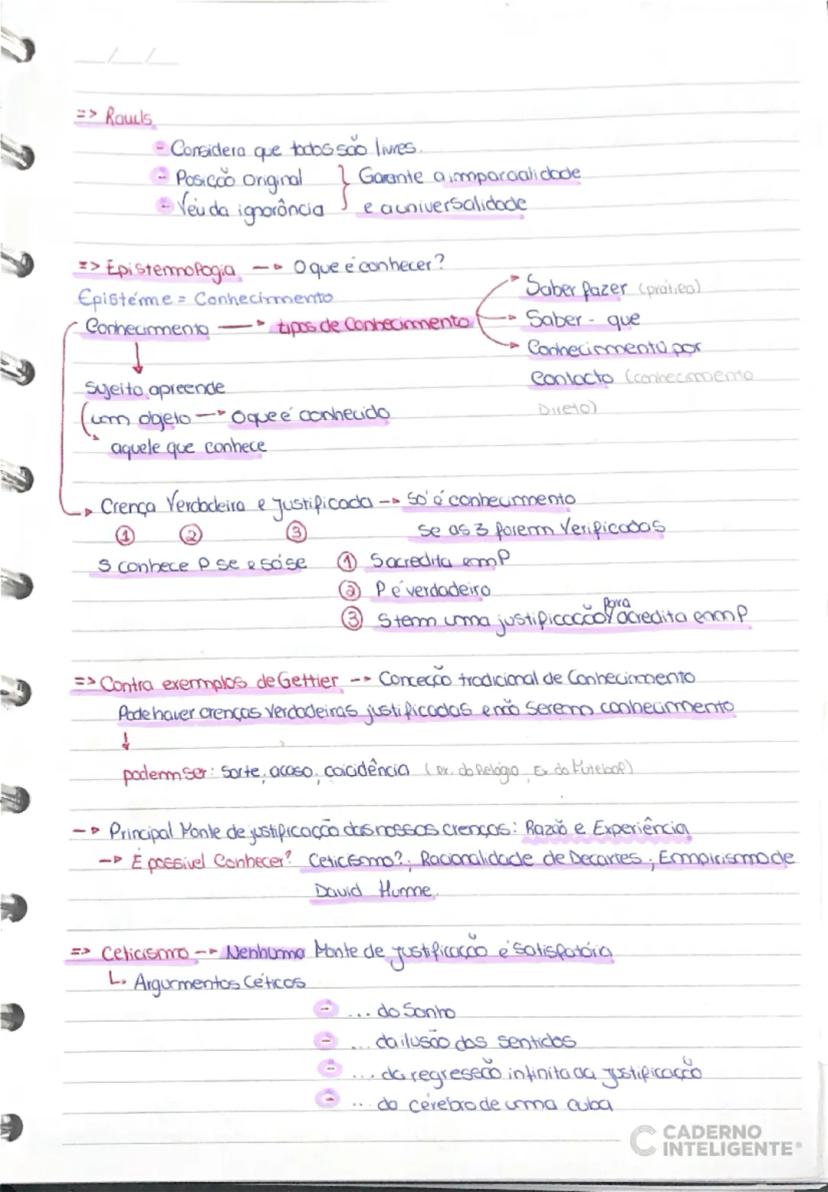 __/__/__
=> Rawls
- Considera que todos são livres.
- Posição Original } Garante a imparcialidade
- Véu da ignorância e a universalidade
=> Epistemologia -> O que é conhecer?
Epistéme = Conhecimento
Saber fazer (prático)
Conhecimento -> tipos de Conhecimento -> Saber - que
-> Conhecimento por
Contacto (conhecimento
Direto)
Sujeito apreende
um objeto -> O que é conhecido
aquele que conhece
-> Crença Verdadeira e Justificada -> só é conhecimento
① ② ③ se as 3 forem Verificadas
S conhece P se e só se ① S acredita em P
② P é verdadeiro
③ S tem uma justificação para acredita em P
=> Contra exemplos de Gettier -> Conceção tradicional de Conhecimento
Pode haver crenças verdadeiras justificadas e não serem conhecimento
podem ser: sorte, acaso, coicidência (Ex. do Relógio, Ex. do Futebol)
-> Principal Fonte de justificação das nossas crenças: Razão e Experiência
-> É possivel Conhecer? Ceticismo?, Racionalidade de Decartes, Empirismo de
David Hume.
=> Ceticismo -> Nenhuma Fonte de justificação é satisfatória
Argumentos Céticos
- ... do Sonho
- ... da ilusão dos sentidos
- ... da regressão infinita da justificação
- ... do cérebro de uma cuba
CADERNO
INTELIGENTE®